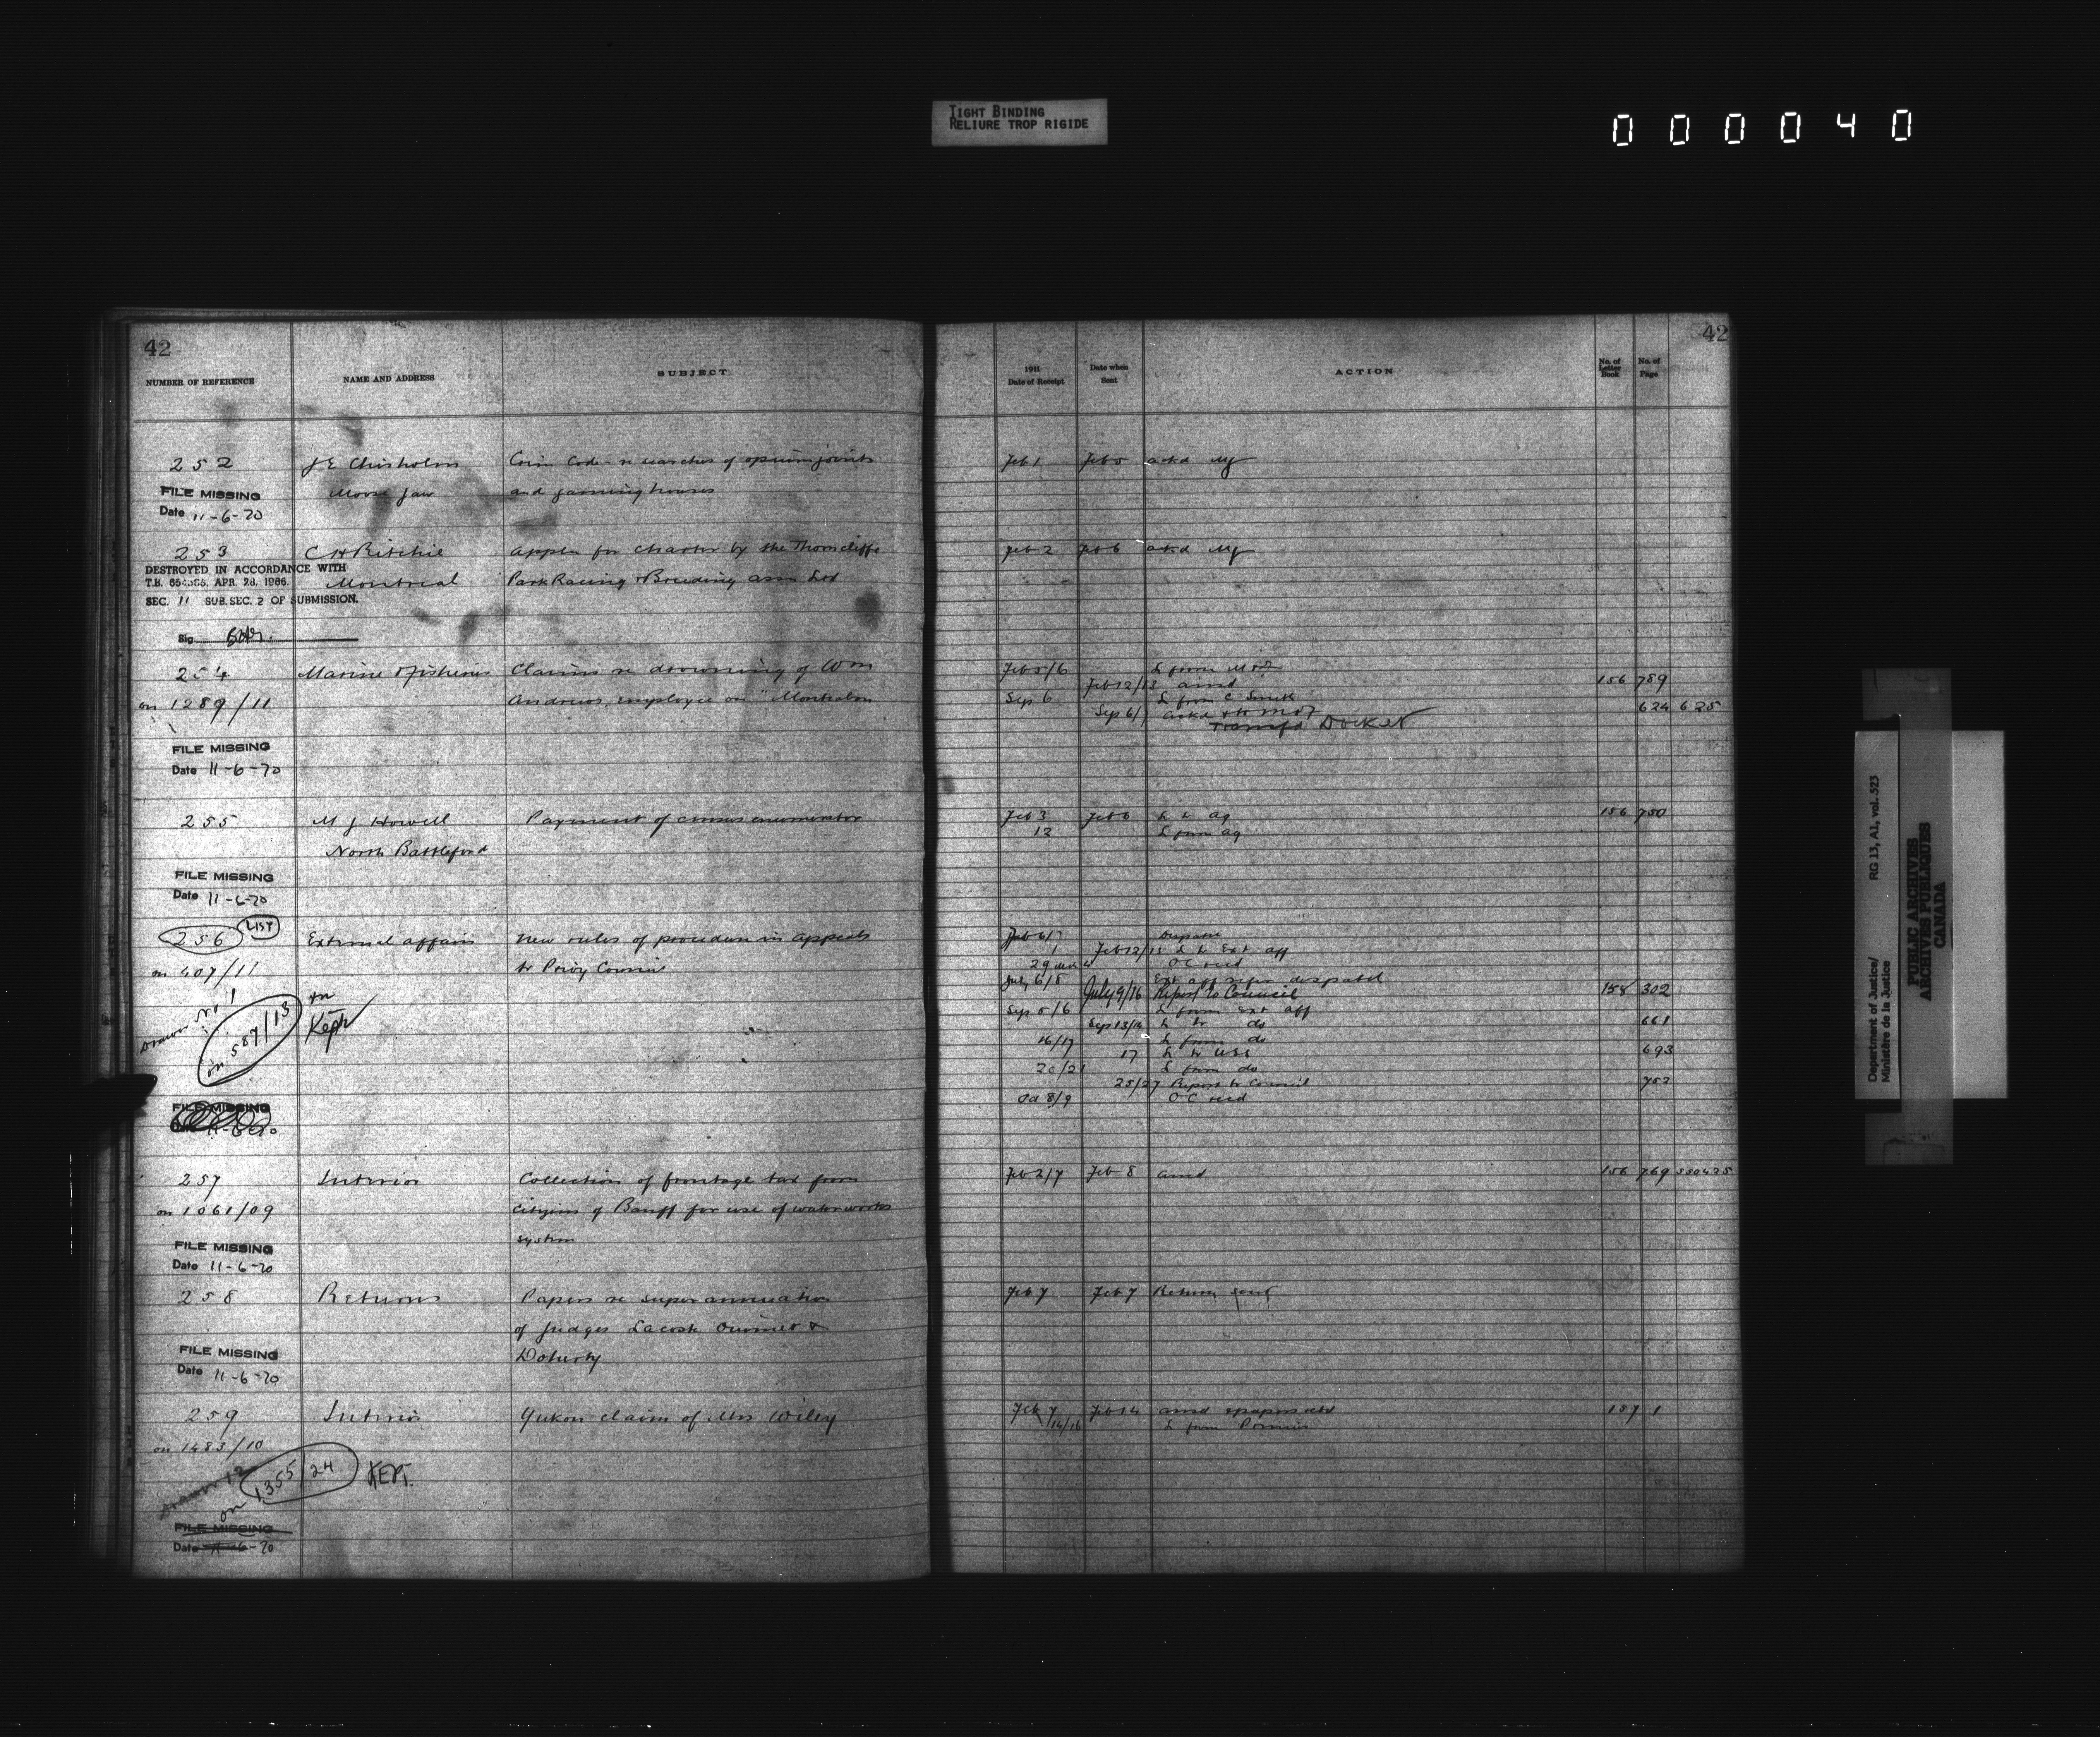 TIGHT BINDING
RELIURE TROP RIGIDE
000040
42
NUMBER OF REFERENCE NAME AND ADDRESS SUBJECT
252 J E Chisholm Crim Code re searches of opium joints
Moose Jaw and gaming houses
FILE MISSING
Date 11-6-70
253 C H Ritchie Appln for charter by the Thorncliffe
DESTROYED IN ACCORDANCE WITH
T.B. APR. 28, 1966.
Montreal Park Racing & Breeding assn Ltd
SEC. 11 SUB. SEC. 2 OF SUBMISSION.
Sig
254 Marine & Fisheries Claims re drowning of Wm
on 1289/11 Andrews, employee on "Montcalm
FILE MISSING
Date 11-6-70
255 M J Howell Payment of census enumerator
North Battleford
FILE MISSING
Date 11-6-70
256 LIST External affairs New rules of procedure in appeals
on 407/11 to Privy Council
Drawer No 1
on 587/13 Kept
FILE MISSING
11-6-70
257 Interior Collection of frontage tax from
on 1061/09 citizens of Banff for use of waterworks
system
FILE MISSING
Date 11-6-70
258 Returns Papers re superannuation
of Judges Lacoste Ouimet &
Doherty
FILE MISSING
Date 11-6-70
259 Interior Yukon claim of Mrs Wiley
on 1483/10
Drawer 12
on 1355/24 KEPT.
FILE MISSING
Date 11-6-70
42
1911
Date of Receipt Date when Sent ACTION No. of Letter Book No. of Page
Feb 1 Feb 5 ackd
Feb 2 Feb 6 ackd
Feb 5/6 L from M & F
Feb 12/13 ansd 156 789
Sep 6 L from C Smith
Sep 6/ ackd & to M & F 624 625
Transfd DOCKET
Feb 3 Feb 6 L to ag 156 750
12 L from ag
Feb 6/7
Feb 12/13 L to Ext aff
29 OC recd
July 6/8 Ext aff refer despatch
July 9/16 Report to Council 158 302
Sep 5/6 L from Ext aff
Sep 13/14 L to do 661
16/17 L from do
17 L to USS 693
20/21 L from do
25/27 Report to Council 752
Oct 8/9 OC recd
Feb 2/7 Feb 8 ansd 156 769
Feb 7 Feb 7 Return sent
Feb 7 Feb 14 ansd & papers retd 157 1
14/16 L from
Department of Justice/
Ministère de la Justice
RG 13, A1, vol. 523
PUBLIC ARCHIVES
ARCHIVES PUBLIQUES
CANADA